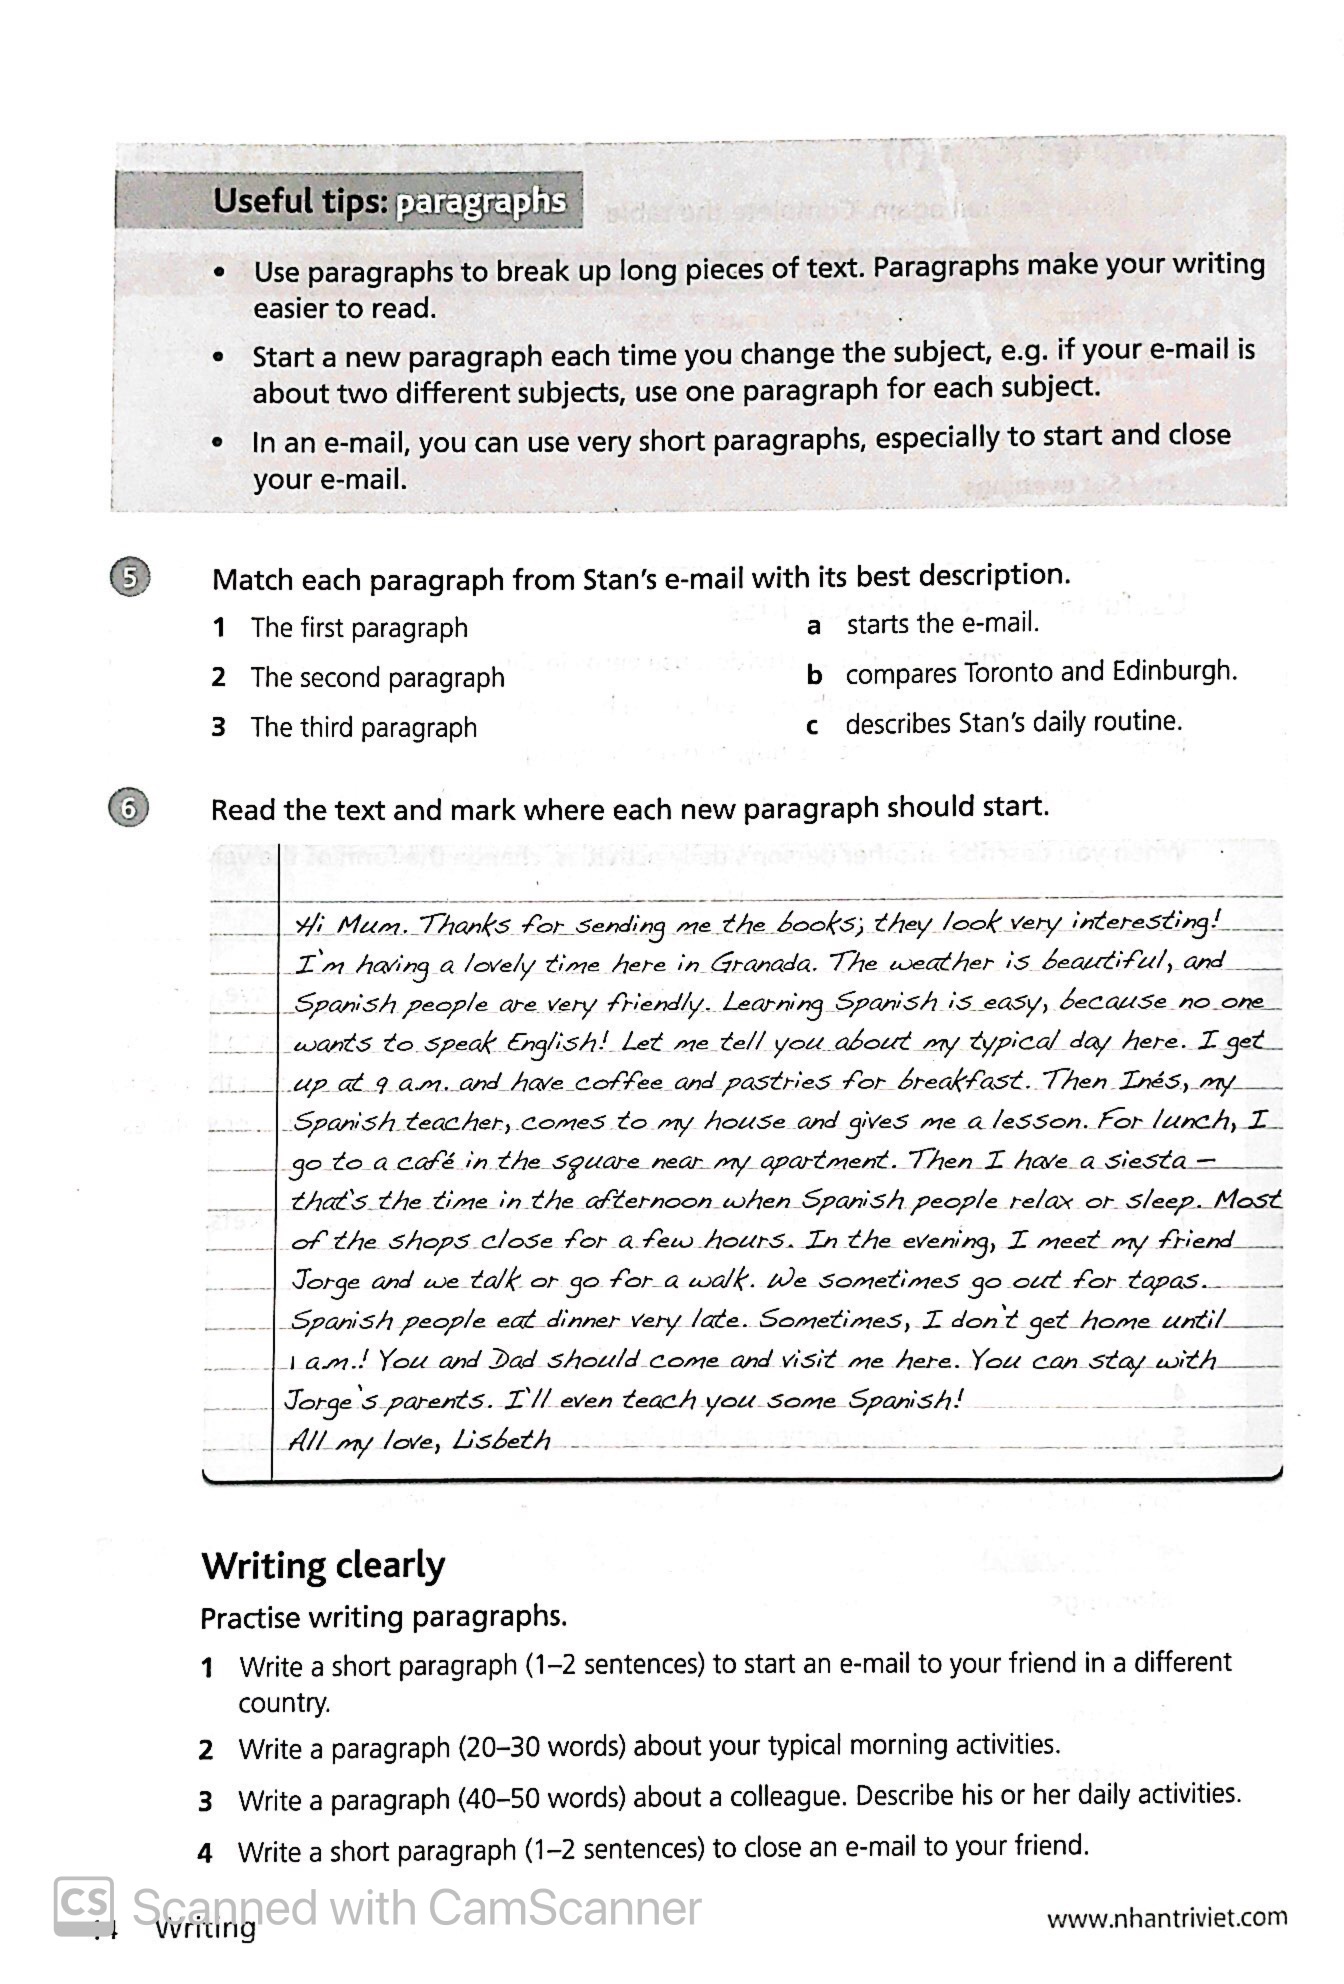 Useful tips: paragraphs
• Use paragraphs to break up long pieces of text. Paragraphs make your writing
easier to read.
• Start a new paragraph each time you change the subject, e.g. if your e-mail is
about two different subjects, use one paragraph for each subject.
• In an e-mail, you can use very short paragraphs, especially to start and close
your e-mail.
5 Match each paragraph from Stan's e-mail with its best description.
1 The first paragraph a starts the e-mail.
2 The second paragraph b compares Toronto and Edinburgh.
3 The third paragraph c describes Stan's daily routine.
6 Read the text and mark where each new paragraph should start.
Hi Mum. Thanks for sending me the books; they look very interesting!
I'm having a lovely time here in Granada. The weather is beautiful, and
Spanish people are very friendly. Learning Spanish is easy, because no one
wants to speak English! Let me tell you about my typical day here. I get
up at 9 a.m. and have coffee and pastries for breakfast. Then Inés, my
Spanish teacher, comes to my house and gives me a lesson. For lunch, I
go to a café in the square near my apartment. Then I have a siesta –
that's the time in the afternoon when Spanish people relax or sleep. Most
of the shops close for a few hours. In the evening, I meet my friend
Jorge and we talk or go for a walk. We sometimes go out for tapas.
Spanish people eat dinner very late. Sometimes, I don't get home until
1 a.m.! You and Dad should come and visit me here. You can stay with
Jorge's parents. I'll even teach you some Spanish!
All my love, Lisbeth
Writing clearly
Practise writing paragraphs.
1 Write a short paragraph (1–2 sentences) to start an e-mail to your friend in a different
country.
2 Write a paragraph (20–30 words) about your typical morning activities.
3 Write a paragraph (40–50 words) about a colleague. Describe his or her daily activities.
4 Write a short paragraph (1–2 sentences) to close an e-mail to your friend.
CS Scanned with CamScanner
Writing www.nhantriviet.com